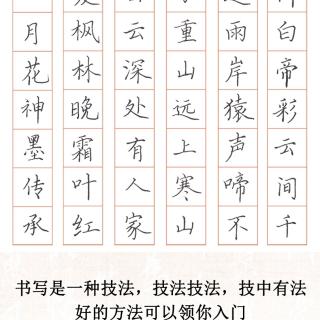 白帝彩云间千
两岸猿声啼不
重山远上寒山
云深处有人家
枫林晚霜叶红
月花神墨传承
书写是一种技法，技法技法，技中有法
好的方法可以领你入门